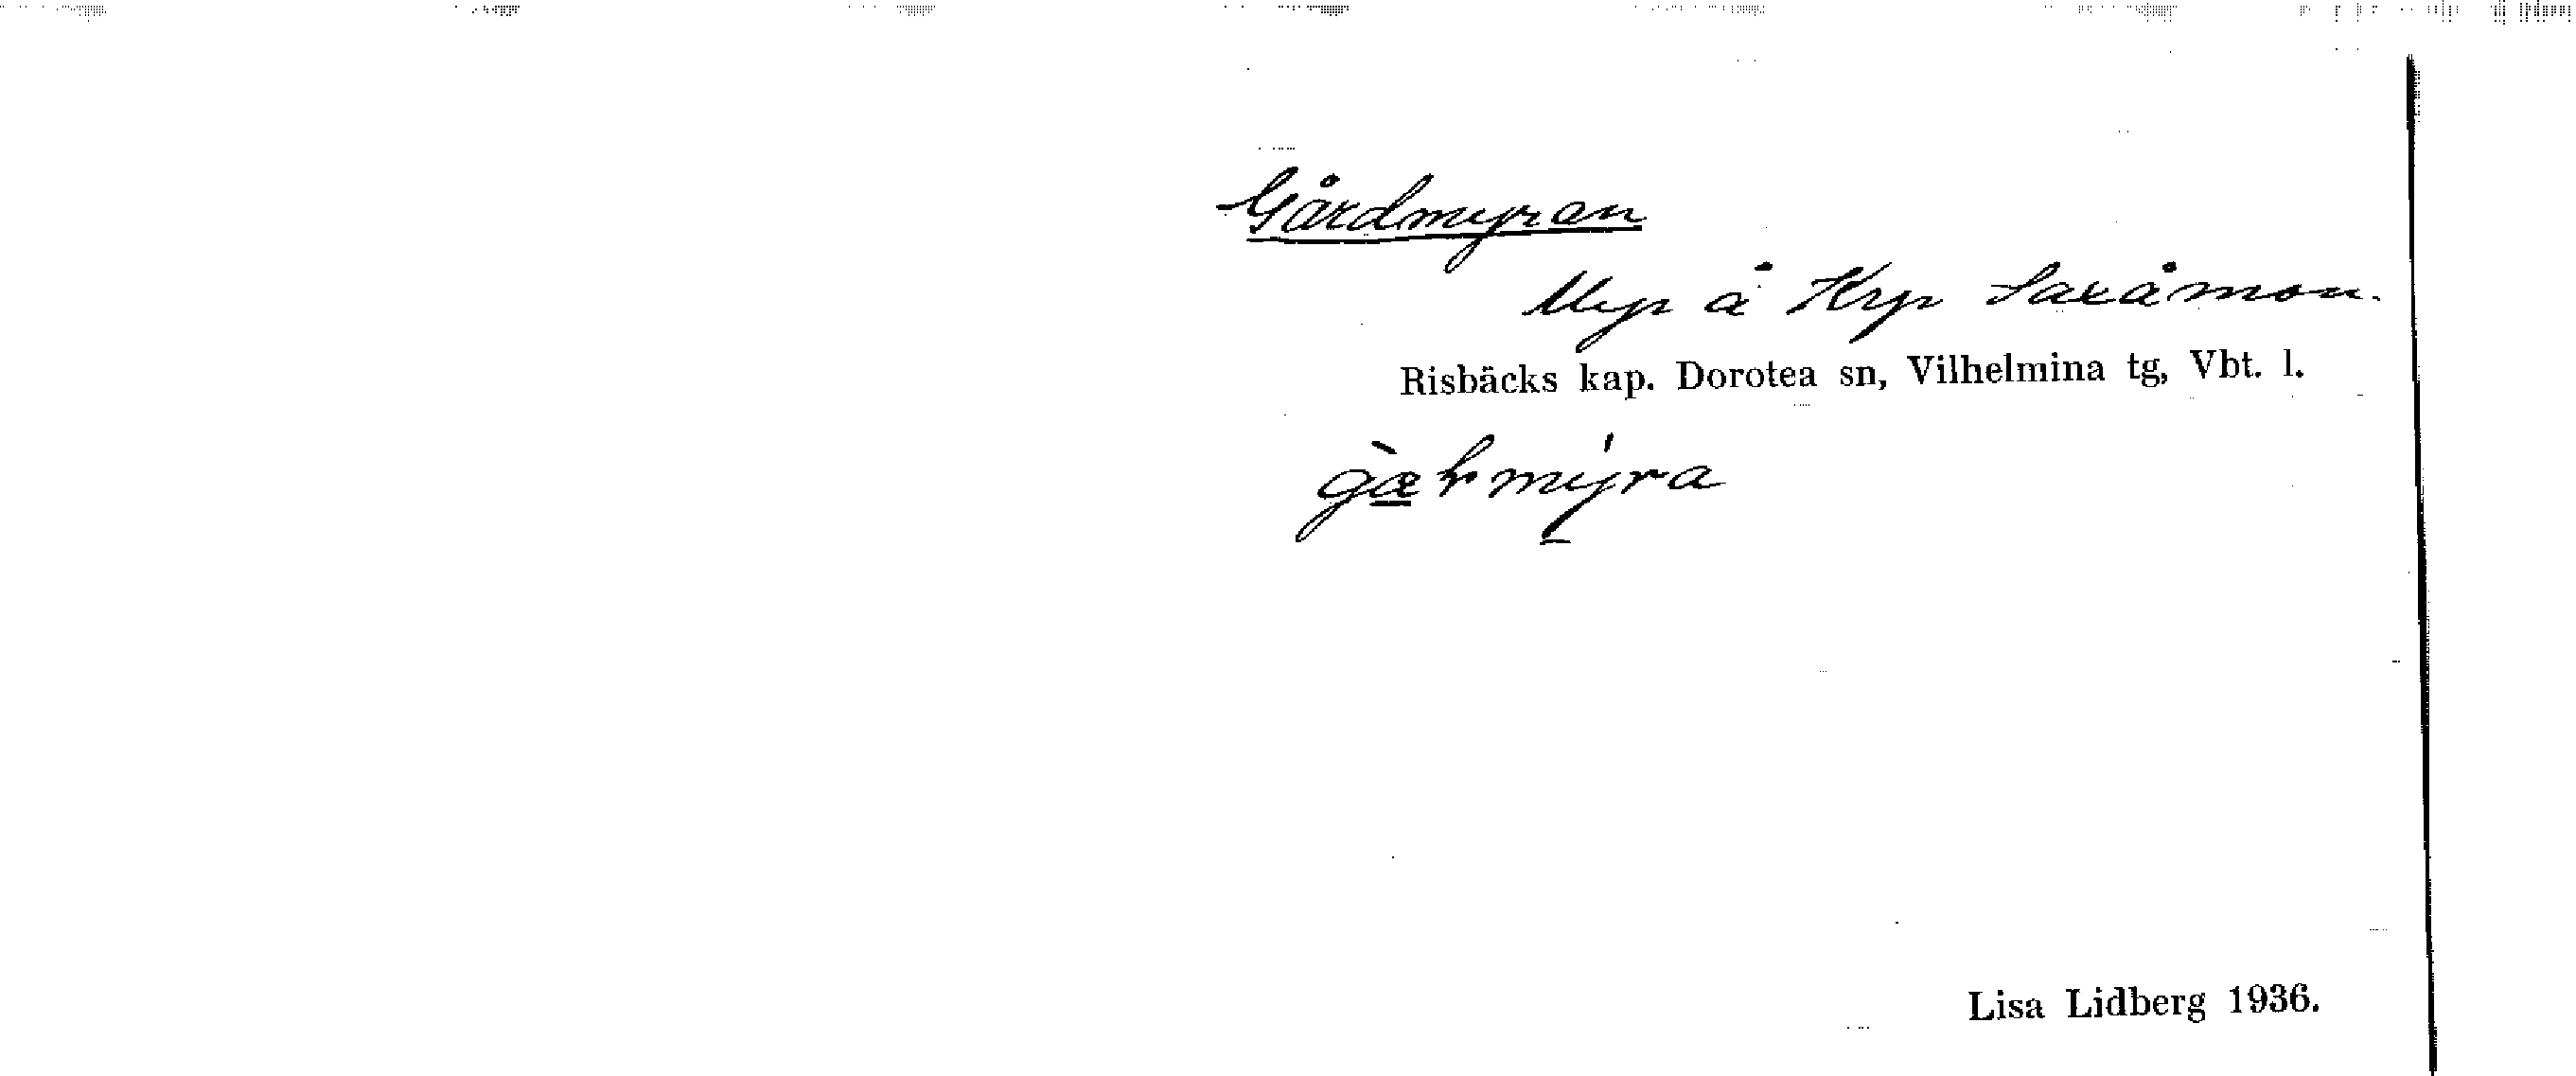 Gårdmyran
Myr å Krp Saxåmon.
Risbäcks kap. Dorotea sn, Vilhelmina tg, Vbt. l.
Lisa Lidberg 1936.